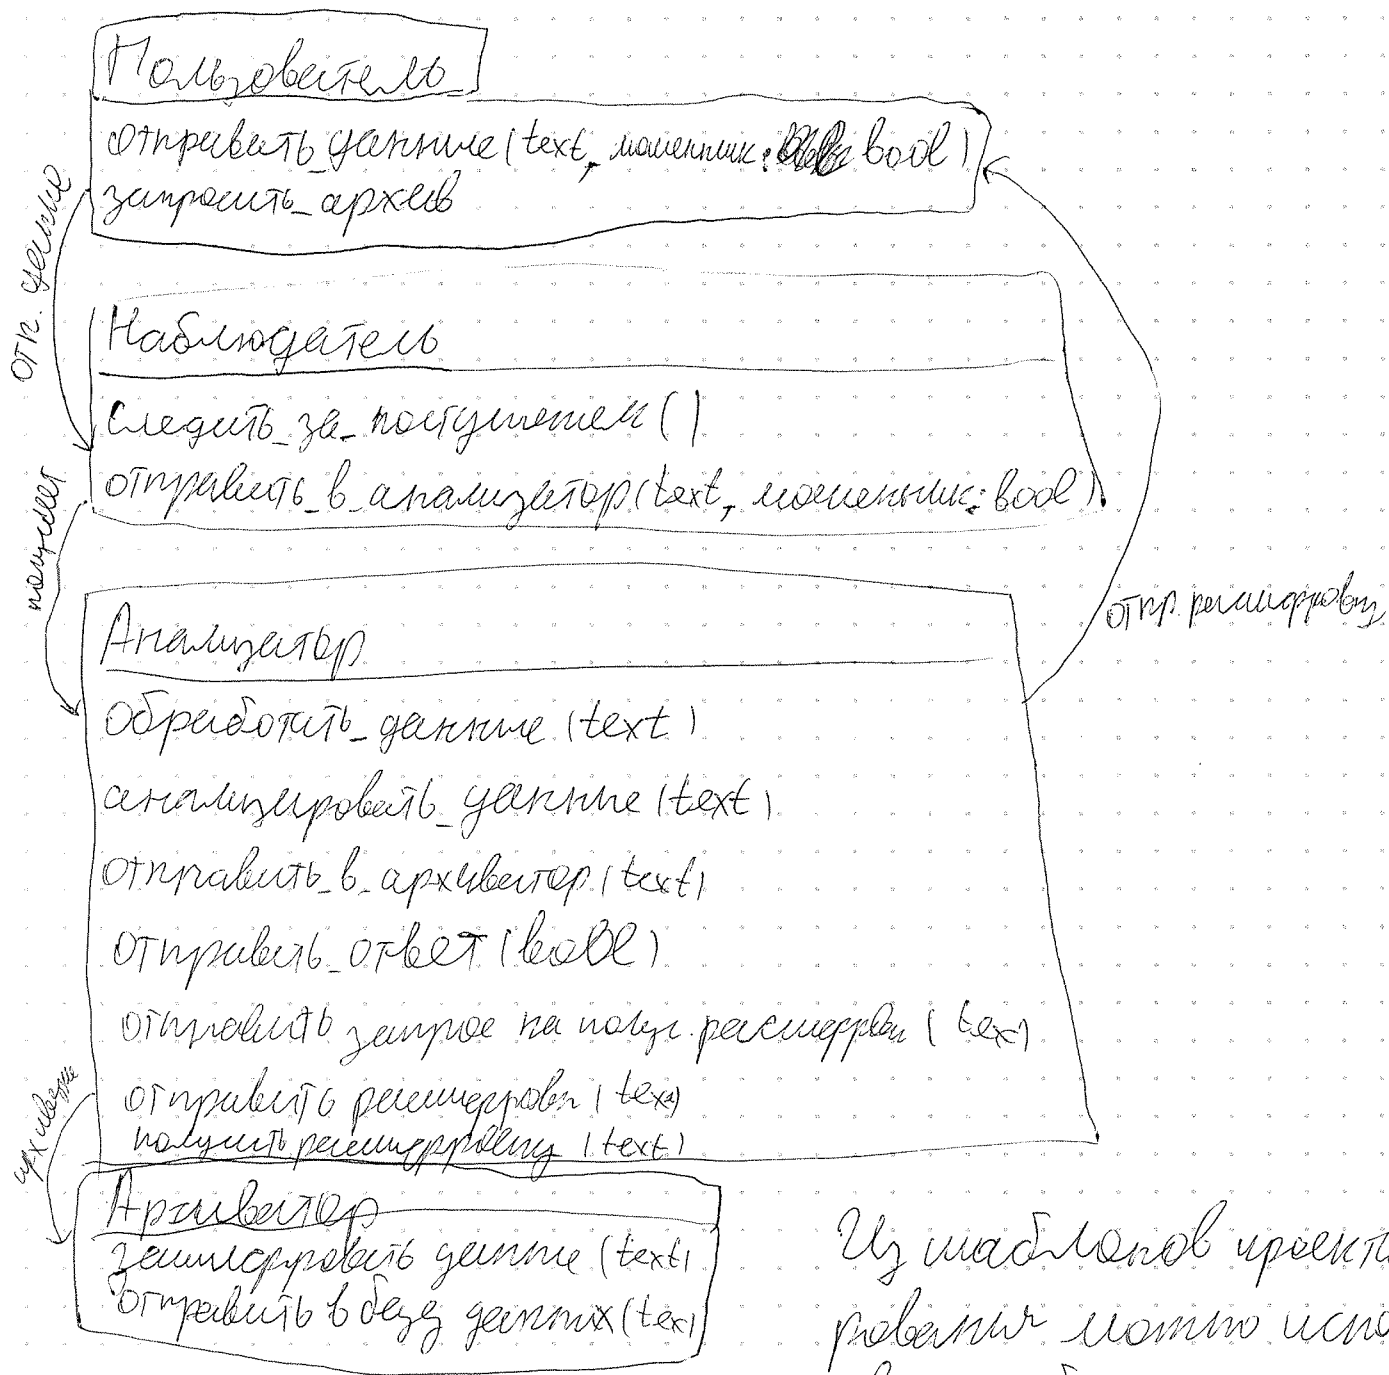 Пользователь
отправить_данные(text, мошенник: bool)
запросить_архив
отп. данные
Наблюдатель
следить_за_поступлением()
отправить_в_анализатор(text, мошенник: bool)
получает
Анализатор
обработать_данные(text)
анализировать_данные(text)
отправить_в_архиватор(text)
отправить_ответ(bool)
отправить запрос на получ. расшифровки (text)
отправить расшифровку (text)
получить расшифровку (text)
отпр. расшифровку
Архиватор
зашифровать данные (text)
отправить в базу данных (text)
Из шаблонов проекти
рования можно испо